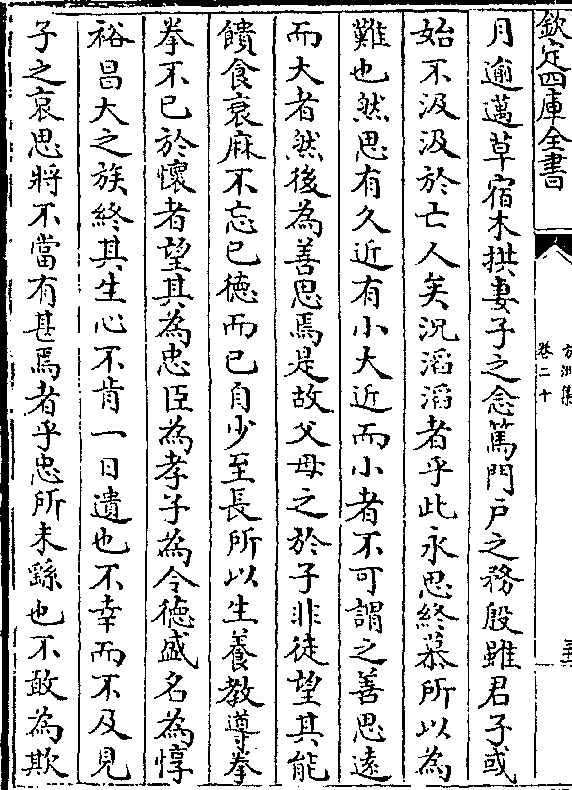 欽定四庫全書
方洲集
卷二十
月逾邁草宿木拱妻子之念篤門戶之務殷雖君子或
始不汲汲於亡人矣況滔滔者乎此永思終慕所以為
難也然思有久近有小大近而小者不可謂之善思遠
而大者然後為善思焉是故父母之於子非徒望其能
饋食衰麻不忘已德而已自少至長所以生養教導拳
拳不已於懷者望其為忠臣為孝子為令德盛名為惇
裕昌大之族終其生心不肯一日遺也不幸而不及見
子之哀思將不當有甚焉者乎忠所未繇也不敢為欺